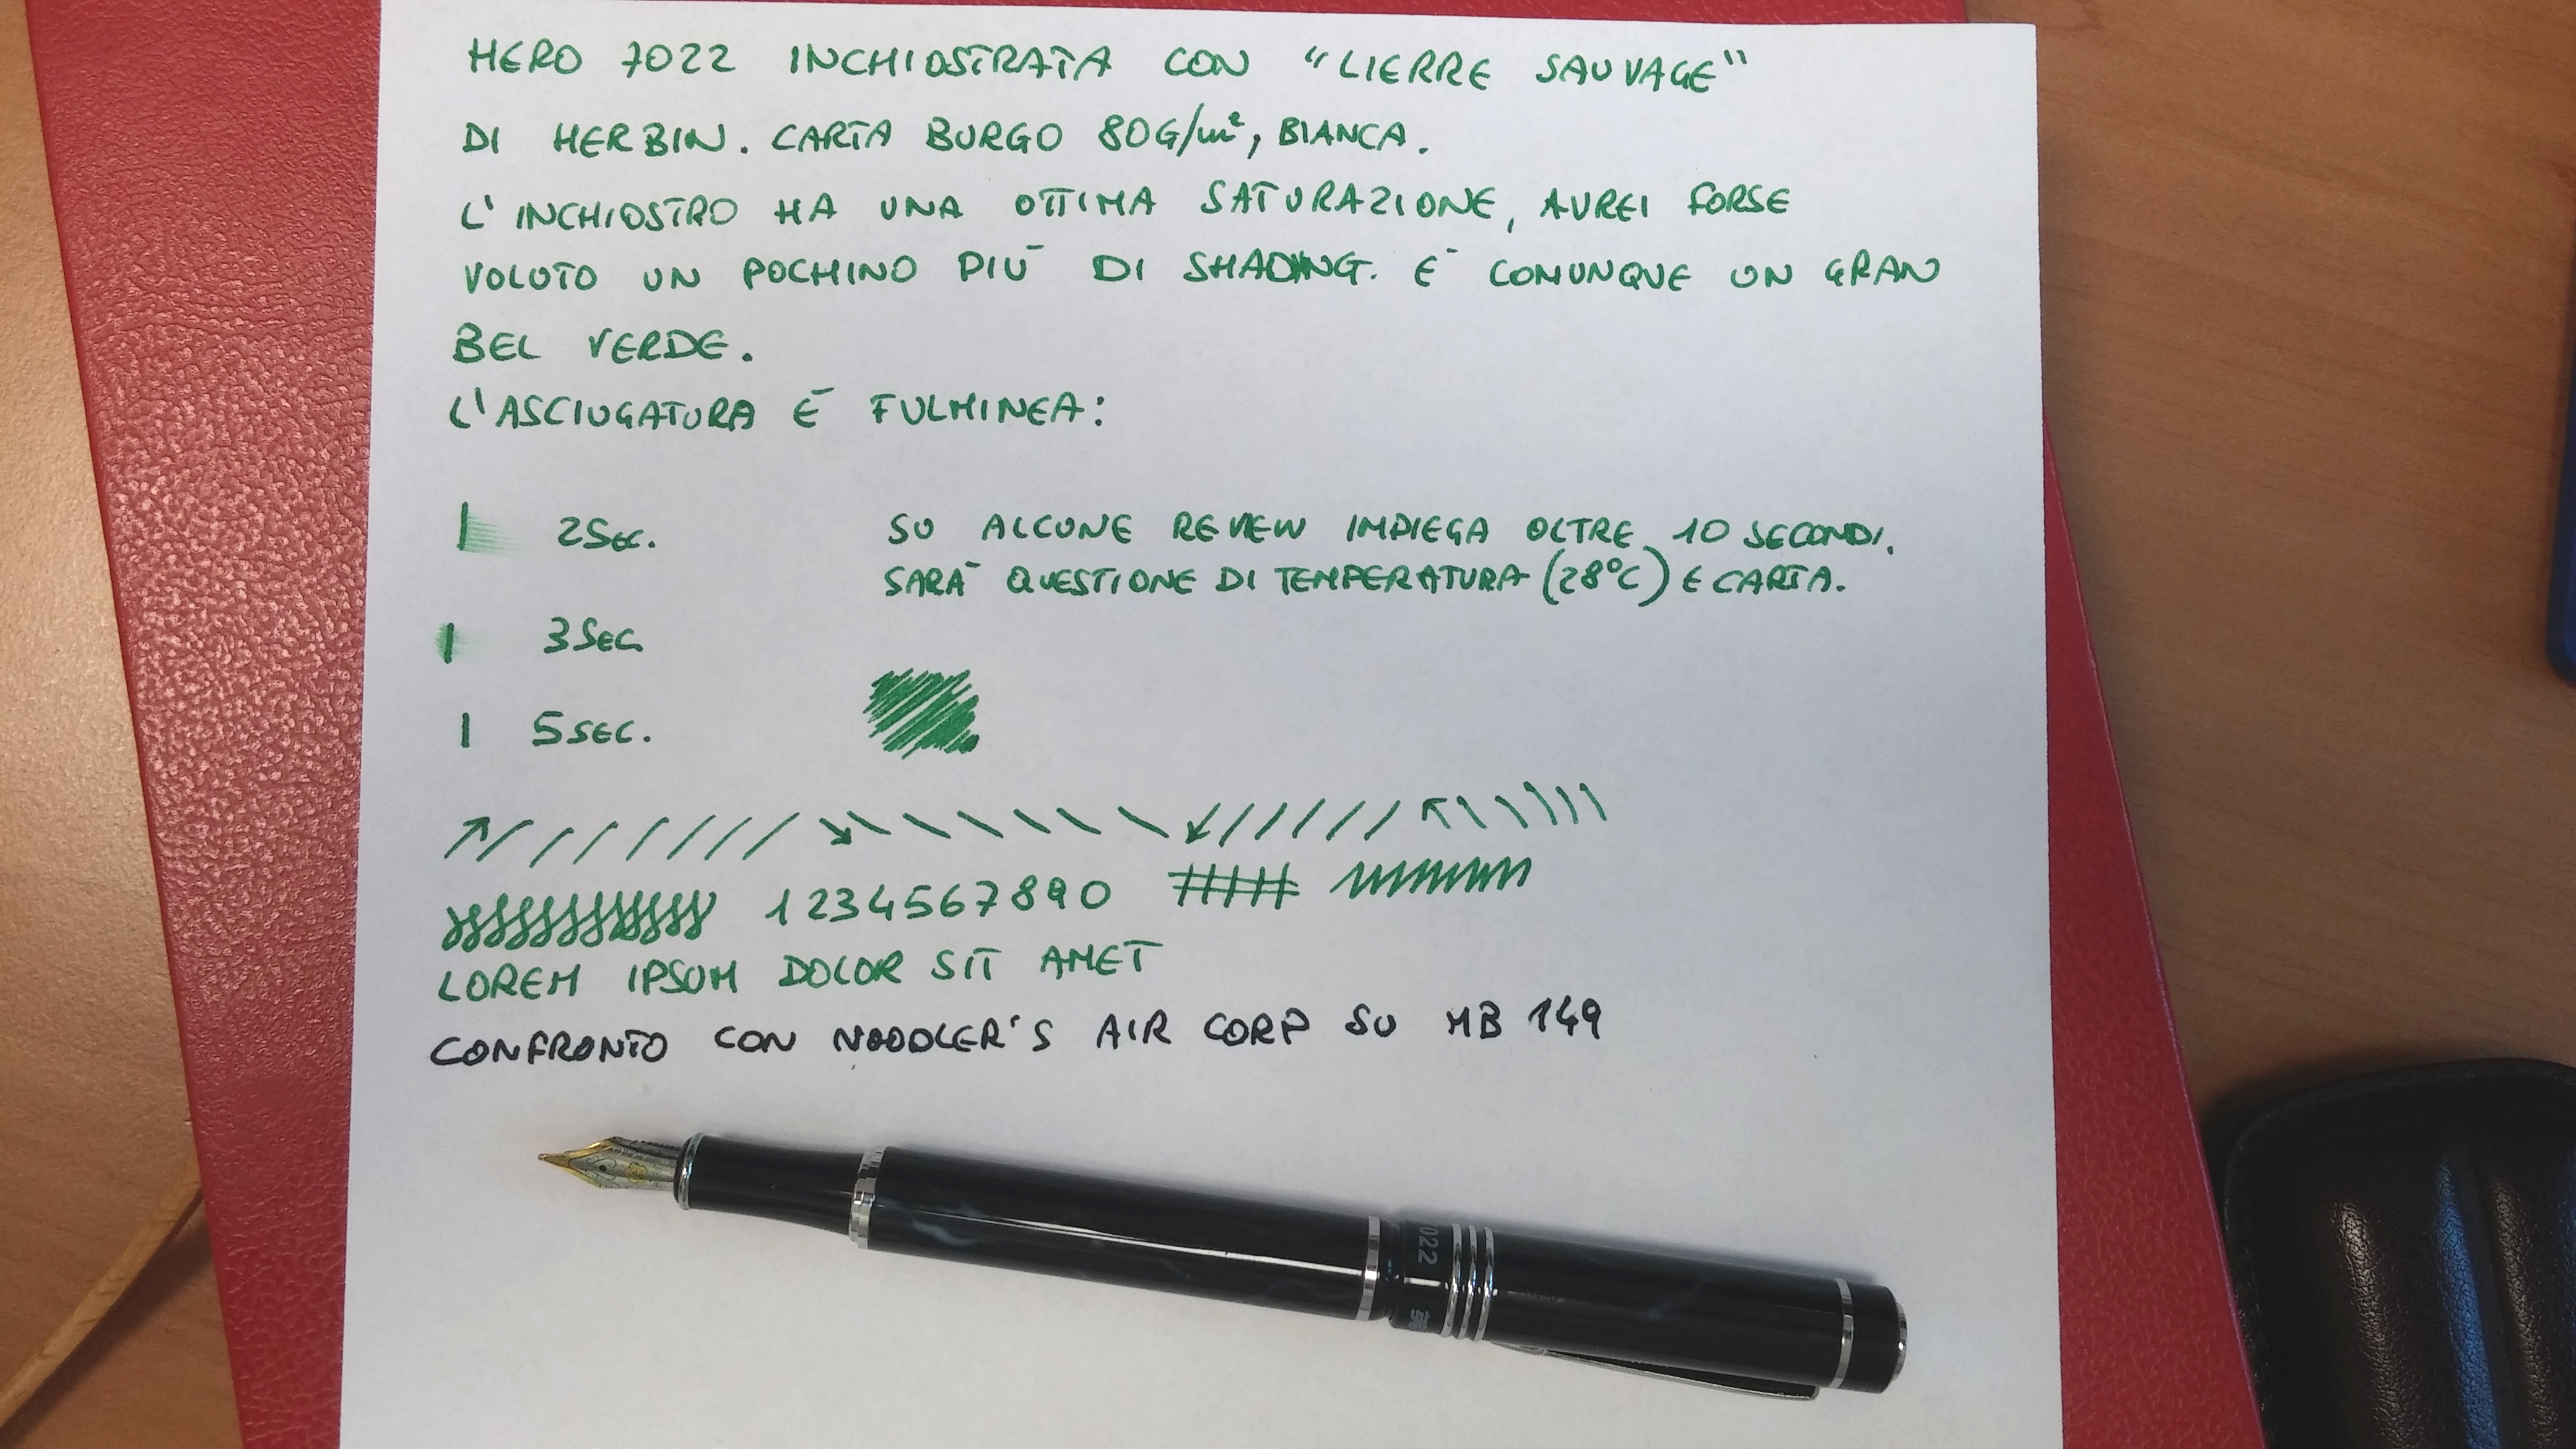 HERO 7022 INCHIOSTRATA CON "LIERRE SAUVAGE"
DI HERBIN. CARTA BURGO 80G/m², BIANCA.
L'INCHIOSTRO HA UNA OTTIMA SATURAZIONE, AVREI FORSE
VOLUTO UN POCHINO PIÙ DI SHADING. È COMUNQUE UN GRAN
BEL VERDE.
L'ASCIUGATURA È FULMINEA:
2SEC.
SU ALCUNE REVIEW IMPIEGA OLTRE 10 SECONDI.
SARÀ QUESTIONE DI TEMPERATURA (28°C) E CARTA.
3SEC
5SEC.
1234567890
LOREM IPSUM DOLOR SIT AMET
CONFRONTO CON NOODLER'S AIR CORP SU MB 149
022 英